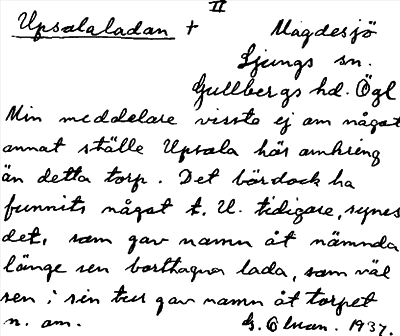 II
Upsalaladan + Magdesjö
Ljungs sn.
Gullbergs hd. Ögl
Min meddelare visste ej om något
annat ställe Upsala här omkring
än detta torp. Det bör dock ha
funnits något t. U. tidigare, synes
det, som gav namn åt nämnda
länge sen borttagna lada, som väl
sen i sin tur gav namn åt torpet
n. om. G. 1937.